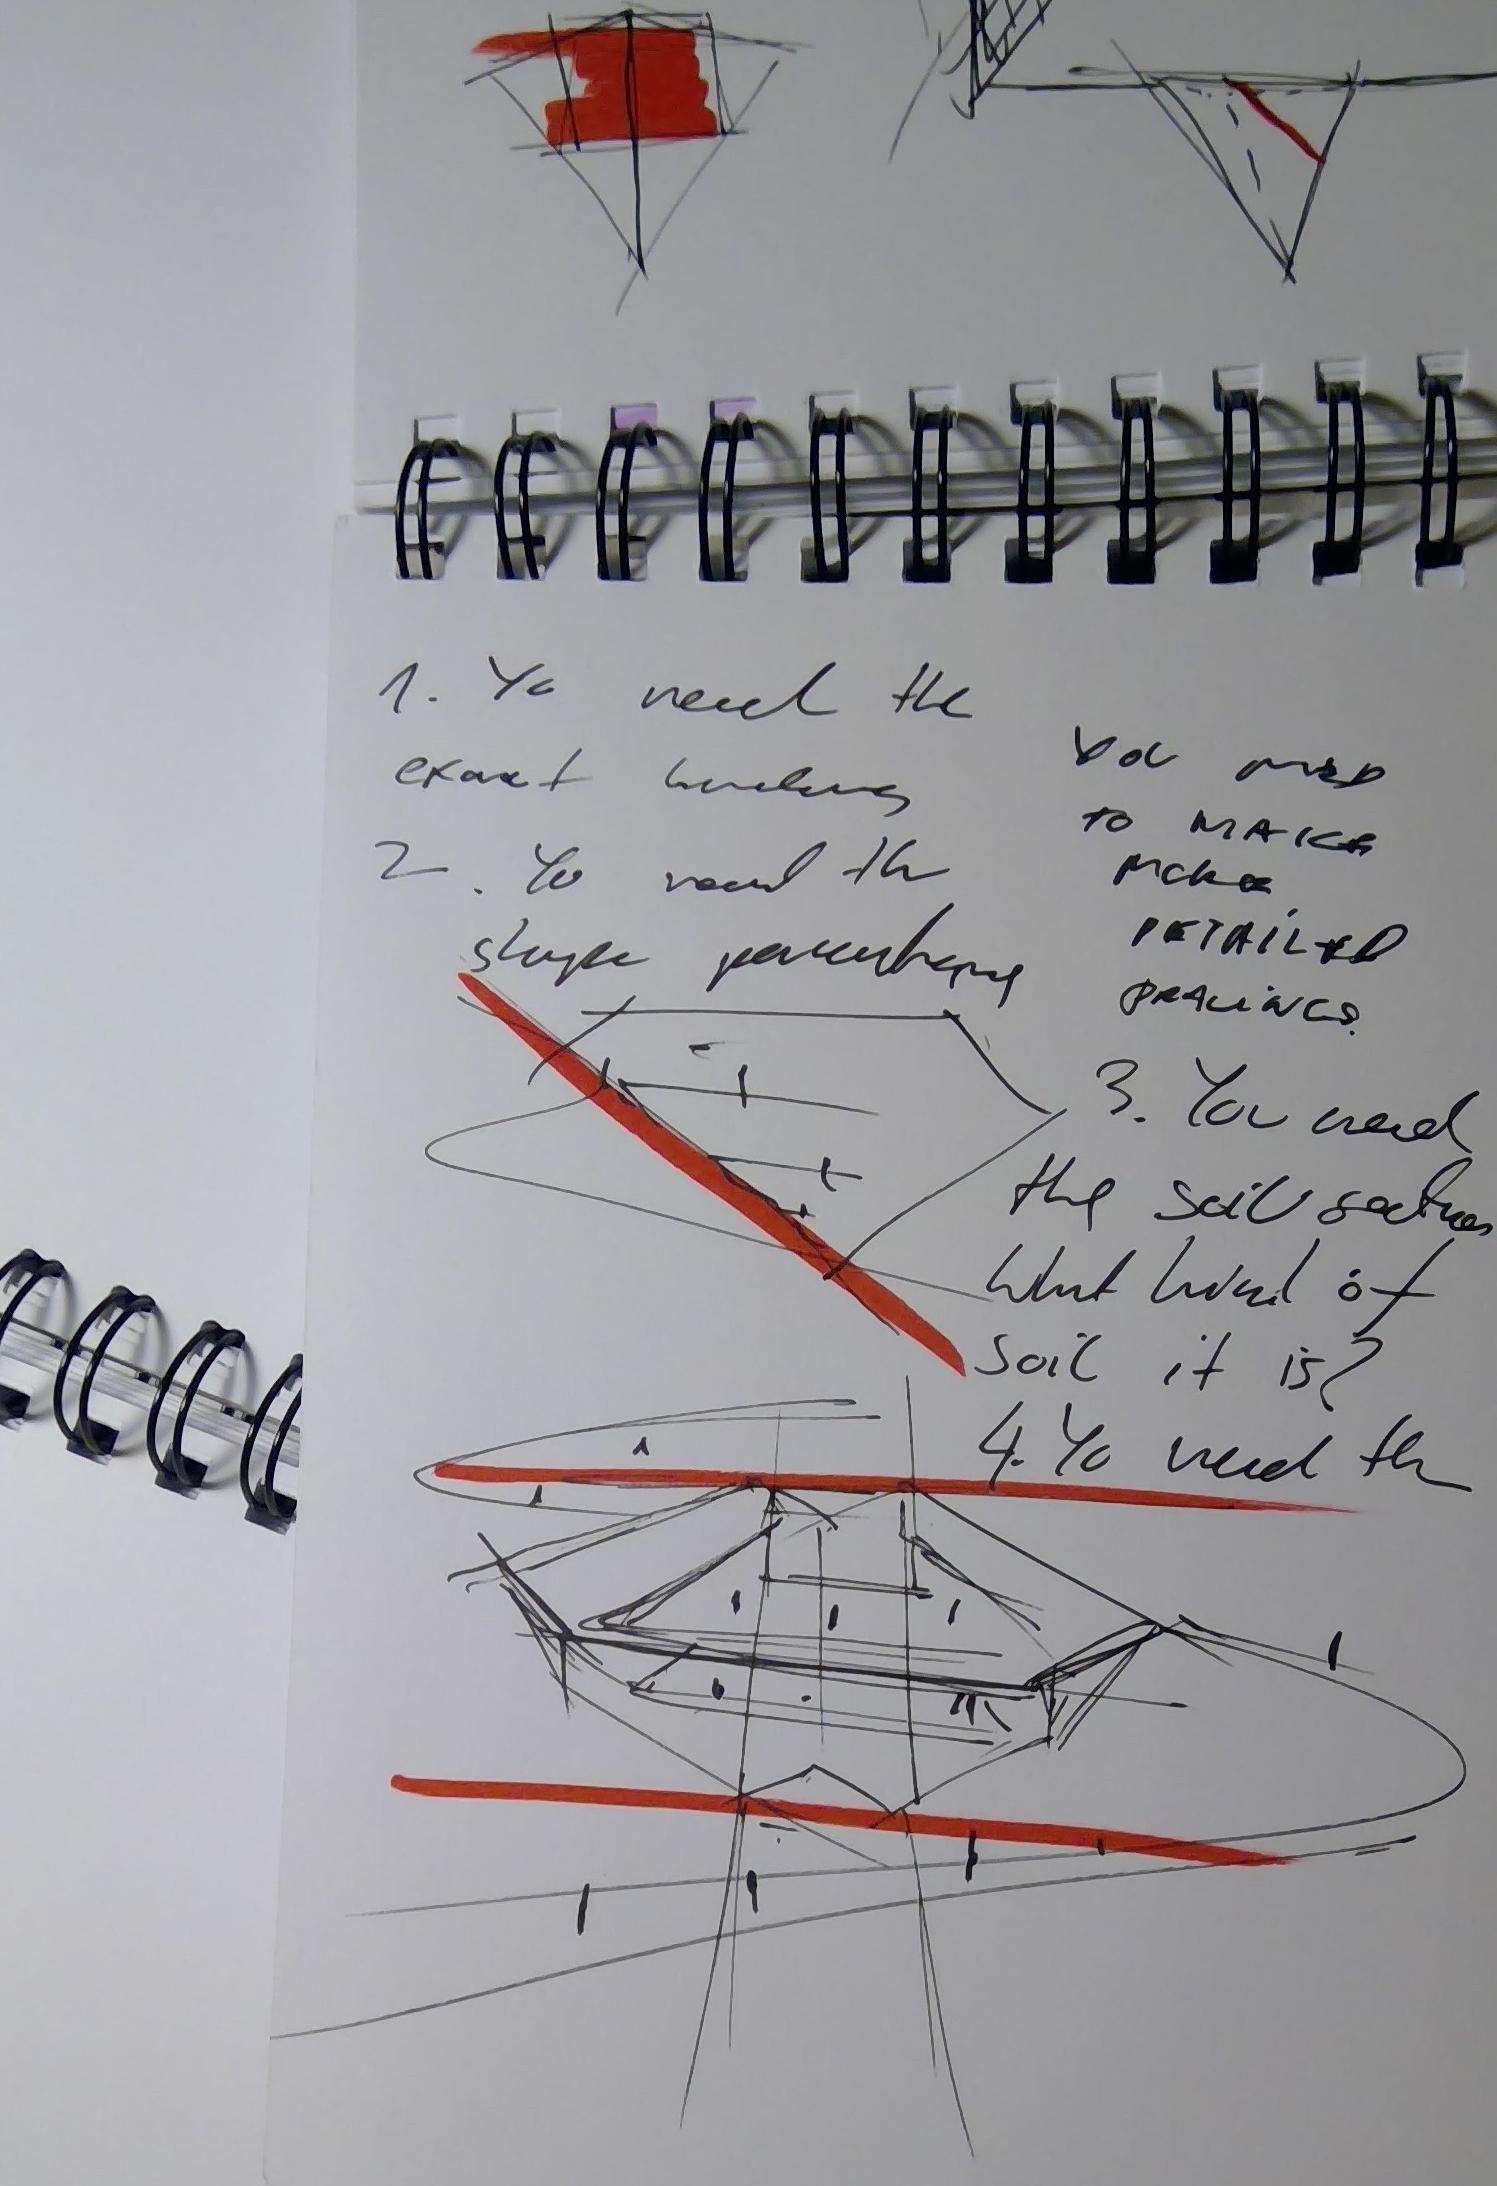 1. Yo need the
exact
2. Yo need the
slope percentage
YOU NEED
TO MAKE
MORE
DETAILED
DRAWINGS.
3. You need
the soil sections
What kind of
soil it is?
4. Yo need th